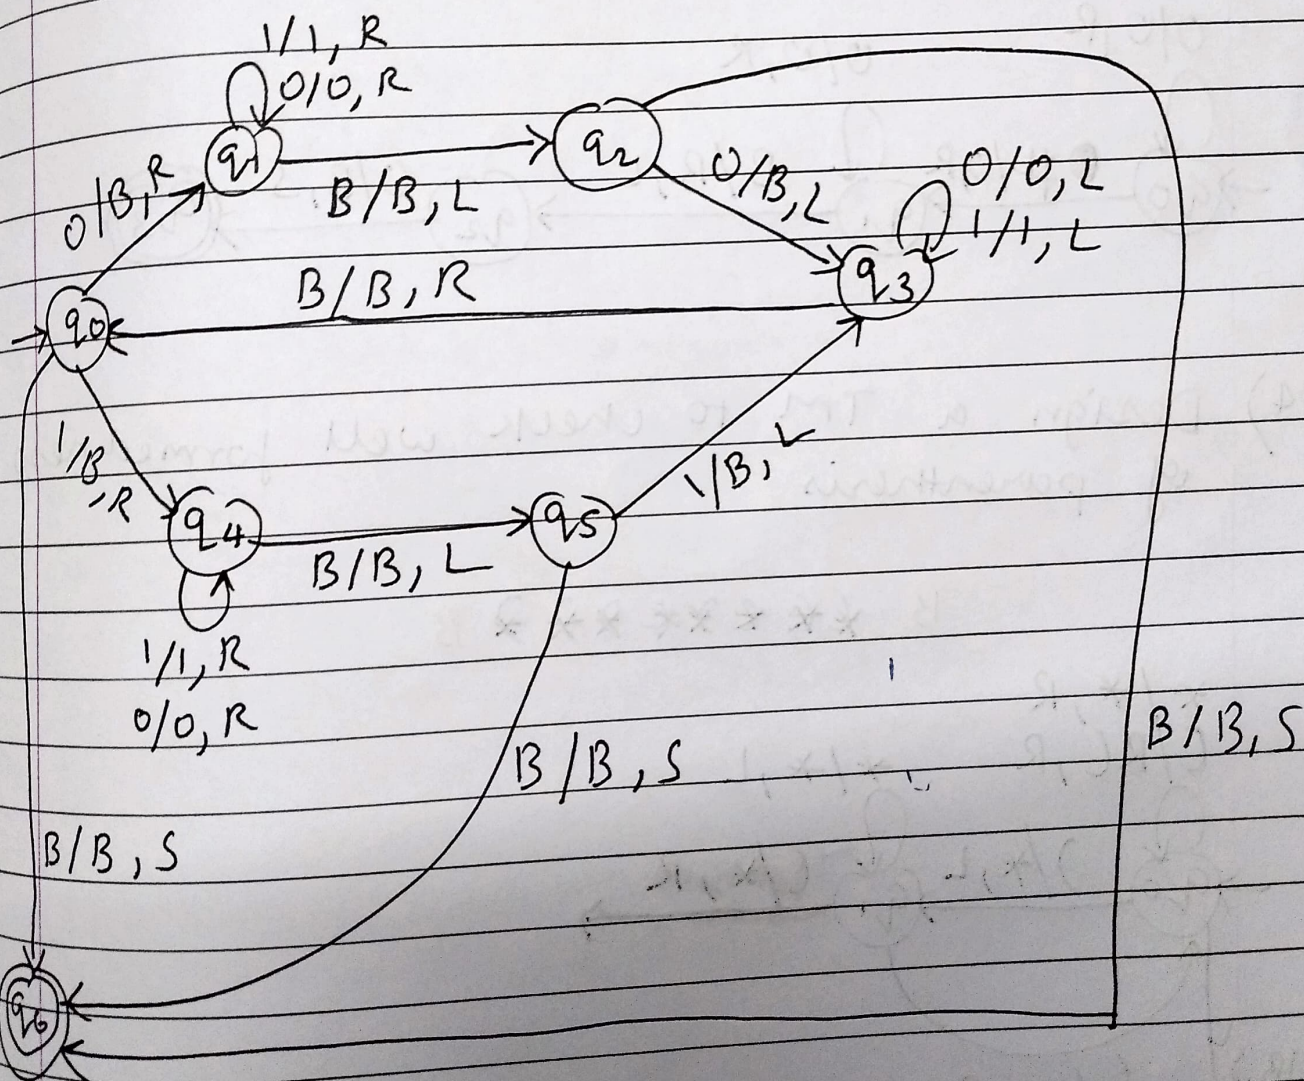 1/1, R
0/0, R
q1
q2
0/B, R
B/B, L
0/B, L
0/0, L
1/1, L
q3
B/B, R
q0
1/B, R
q4
q5
1/B, L
B/B, L
1/1, R
0/0, R
B/B, S
B/B, S
B/B, S
q6